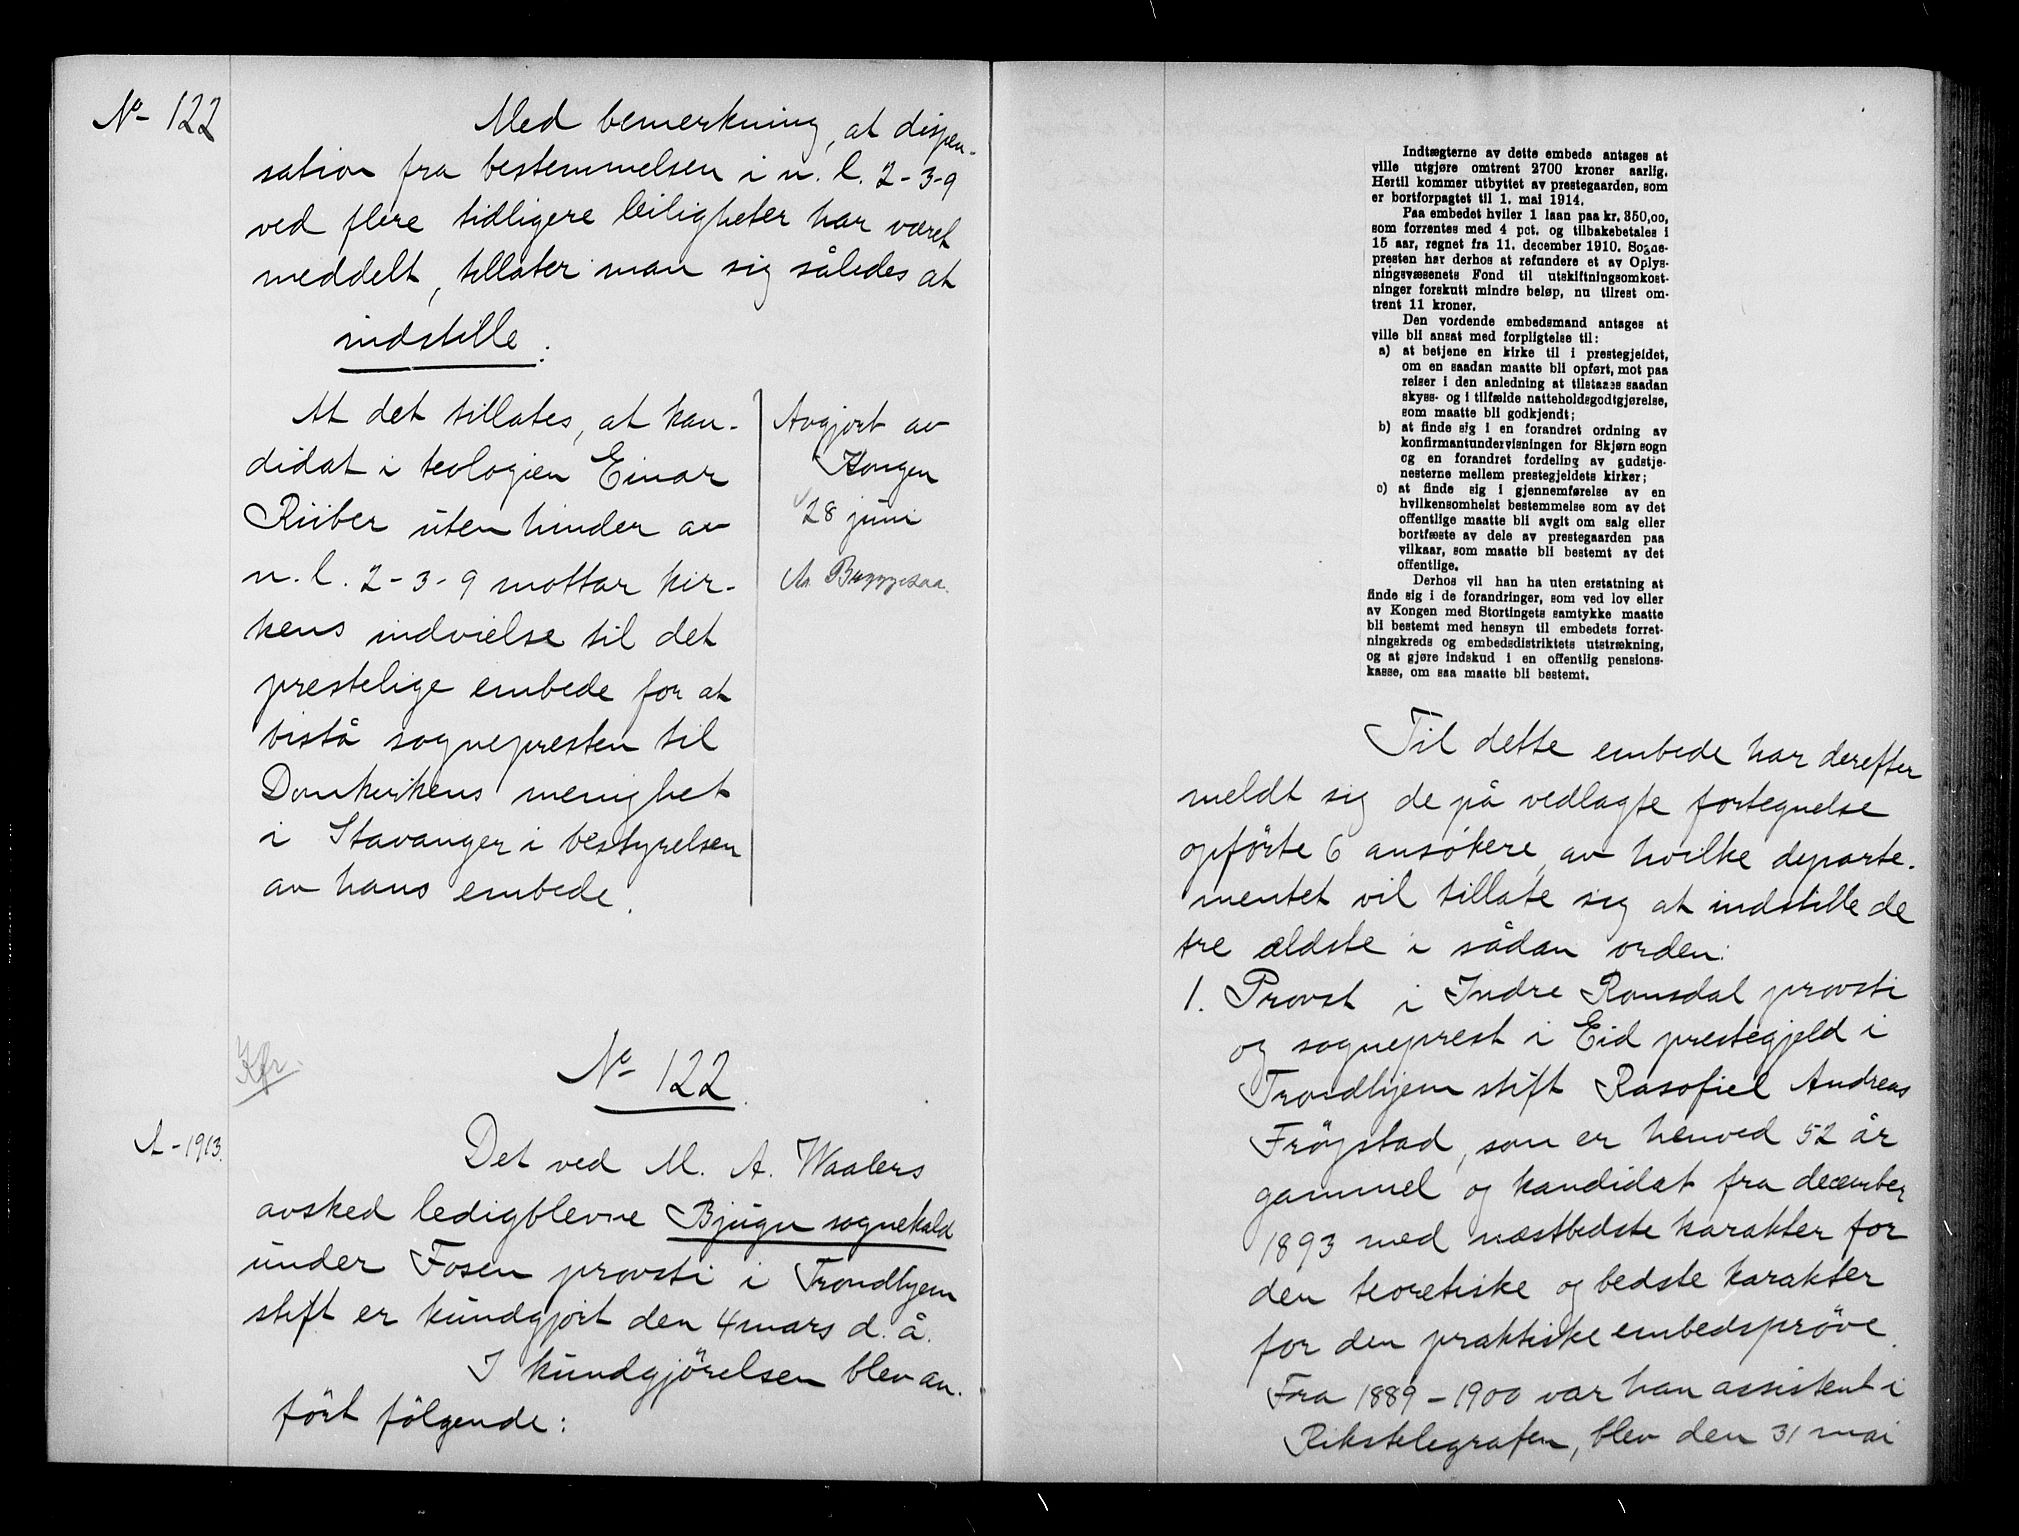 No 122
Med bemerkning, at dispen-
sation fra bestemmelsen i n. l. 2-3-9
ved flere tidligere leiligheter har været
meddelt, tillater man sig således at
indstille:
At det tillates, at kan-
didat i teologien Einar
Riiber uten hinder av
n. l. 2-3-9 mottar kir-
kens indvielse til det
prestelige embede for at
bistå sognepresten til
Domkirkens menighet
i Stavanger i bestyrelsen
av hans embede.
Avgjort av
Kongen
28 juni
Kfr.
No 122.
A-1913.
Det ved M. A. Waalers
avsked ledigblevne Bjugn sognekald
under Fosen provsti i Trondhjem
stift er kundgjort den 4 mars d. å.
I kundgjørelsen blev an-
ført følgende:
Indtægterne av dette embede antages at
ville utgjøre omtrent 2700 kroner aarlig.
Hertil kommer utbyttet av prestegaarden, som
er bortforpagtet til 1. mai 1914.
Paa embedet hviler 1 laan paa kr. 350,00,
som forrentes med 4 pct. og tilbakebetales i
15 aar, regnet fra 11. december 1910. Sogne-
presten har derhos at refundere et av Oplys-
ningsvæsenets Fond til utskiftningsomkost-
ninger forskutt mindre beløp, nu tilrest om-
trent 11 kroner.
Den vordende embedsmand antages at
ville bli ansat med forpligtelse til:
a) at betjene en kirke til i prestegjeldet,
om en saadan maatte bli opført, mot paa
reiser i den anledning at tilstaaes saadan
skyss- og i tilfælde natteholdsgodtgjørelse,
som maatte bli godkjendt;
b) at finde sig i en forandret ordning av
konfirmantundervisningen for Skjørn sogn
og en forandret fordeling av gudstje-
nesterne mellem prestegjeldets kirker;
c) at finde sig i gjennemførelse av en
hvilkensomhelst bestemmelse som av det
offentlige maatte bli avgit om salg eller
bortfæste av dele av prestegaarden paa
vilkaar, som maatte bli bestemt av det
offentlige.
Derhos vil han ha uten erstatning at
finde sig i de forandringer, som ved lov eller
av Kongen med Stortingets samtykke maatte
bli bestemt med hensyn til embedets forret-
ningskreds og embedsdistriktets utstrækning,
og at gjøre indskud i en offentlig pensions-
kasse, om saa maatte bli bestemt.
Til dette embede har derefter
meldt sig de på vedlagte fortegnelse
opførte 6 ansøkere, av hvilke departe-
mentet vil tillate sig at indstille de
tre ældste i sådan orden:
1. Provst i Indre Romsdal provsti
og sogneprest i Eid prestegjeld i
Trondhjem stift Rasofiel Andreas
Frøystad, som er henved 52 år
gammel og kandidat fra december
1893 med næstbedste karakter for
den teoretiske og bedste karakter
for den praktiske embedsprøve.
Fra 1889-1900 var han assistent i
Rikstelegrafen, blev den 31 mai